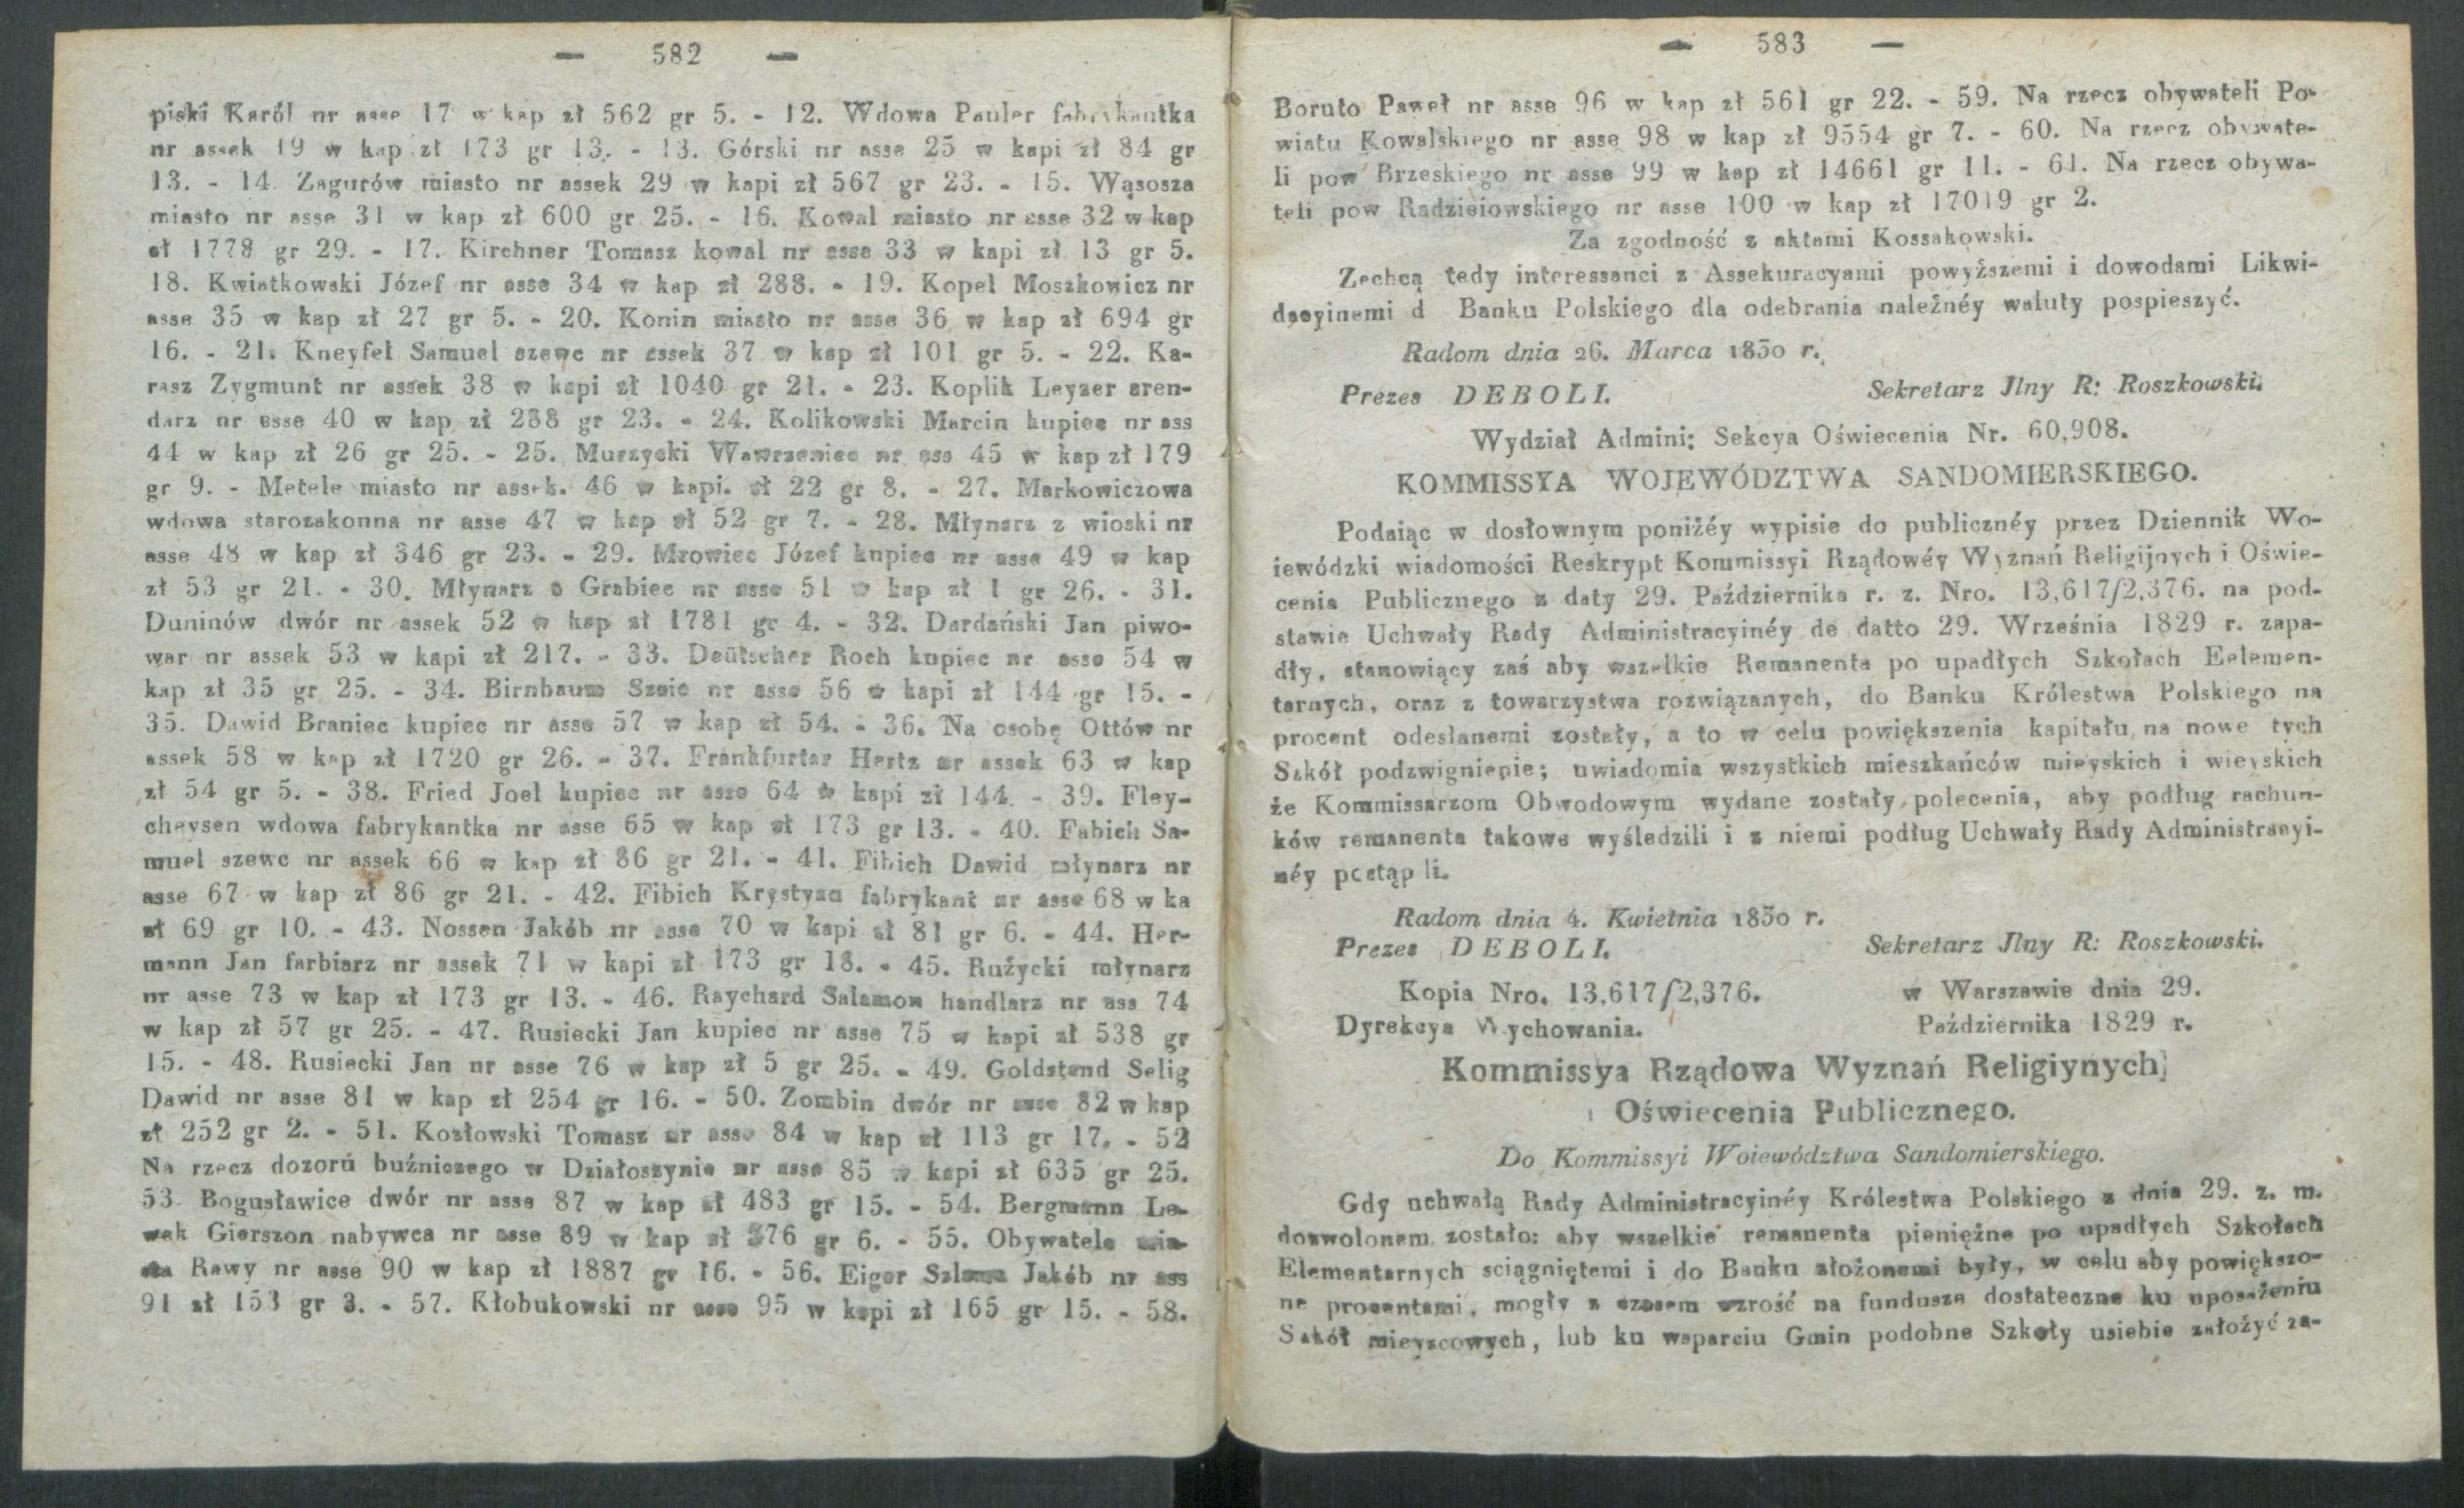 — 582 —
piski Karól nr asse 17 w kap zł 562 gr 5. - 12. Wdowa Pauler fabrykantka
nr assek 19 w kap zł 173 gr 13. - 13. Górski nr asse 25 w kapi zł 84 gr
13. - 14. Zagurów miasto nr assek 29 w kapi zł 567 gr 23. - 15. Wąsosza
miasto nr asse 31 w kap zł 600 gr 25. - 16. Kowal miasto nr asse 32 w kap
zł 1778 gr 29. - 17. Kirchner Tomasz kowal nr asse 33 w kapi zł 13 gr 5.
18. Kwiatkowski Józef nr asse 34 w kap zł 288. - 19. Kopel Moszkowicz nr
asse 35 w kap zł 27 gr 5. - 20. Konin miasto nr asse 36 w kap zł 694 gr
16. - 21. Kneyfel Samuel szewc nr assek 37 w kap zł 101 gr 5. - 22. Ka-
rasz Zygmunt nr assek 38 w kapi zł 1040 gr 21. - 23. Koplik Leyzer aren-
darz nr asse 40 w kap zł 288 gr 23. - 24. Kolikowski Marcin kupiec nr ass
44 w kap zł 26 gr 25. - 25. Murzycki Wawrzeniec nr ass 45 w kap zł 179
gr 9. - Metele miasto nr assek. 46 w kapi. zł 22 gr 8. - 27. Markowiczowa
wdowa starozakonna nr asse 47 w kap zł 52 gr 7. - 28. Młynarz z wioski nr
asse 48 w kap zł 346 gr 23. - 29. Mrowiec Józef kupiec nr asse 49 w kap
zł 53 gr 21. - 30. Młynarz o Grabiec nr asse 51 w kap zł 1 gr 26. - 31.
Duninów dwór nr assek 52 w kap zł 1781 gr 4. - 32. Dardański Jan piwo-
war nr assek 53 w kapi zł 217. - 33. Deütscher Roch kupiec nr asse 54 w
kap zł 35 gr 25. - 34. Birnbaum nr asse 56 w kapi zł 144 gr 15. -
35. Dawid Braniec kupiec nr asse 57 w kap zł 54. - 36. Na osobę Ottów nr
assek 58 w kap zł 1720 gr 26. - 37. Frankfurter Hertz nr assek 63 w kap
zł 54 gr 5. - 38. Fried Joel kupiec nr asse 64 w kapi zł 144. - 39. Fley-
cheysen wdowa fabrykantka nr asse 65 w kap zł 173 gr 13. - 40. Fabich Sa-
muel szewc nr assek 66 w kap zł 86 gr 21. - 41. Fibich Dawid młynarz nr
asse 67 w kap zł 86 gr 21. - 42. Fibich Krystyan fabrykant nr asse 68 w ka
zł 69 gr 10. - 43. Nossen Jakób nr asse 70 w kapi zł 81 gr 6. - 44. Her-
mann Jan farbiarz nr assek 71 w kapi zł 173 gr 18. - 45. Rużycki młynarz
nr asse 73 w kap zł 173 gr 13. - 46. Raychard Salamon handlarz nr ass 74
w kap zł 57 gr 25. - 47. Rusiecki Jan kupiec nr asse 75 w kapi zł 538 gr
15. - 48. Rusiecki Jan nr asse 76 w kap zł 5 gr 25. - 49. Goldstand Selig
Dawid nr asse 81 w kap zł 254 gr 16. - 50. Zombin dwór nr asse 82 w kap
zł 252 gr 2. - 51. Kozłowski Tomasz nr asse 84 w kap zł 113 gr 17. - 52
Na rzecz dozoru buźniczego w Działoszynie nr asse 85 w kapi zł 635 gr 25.
53. Bogusławice dwór nr asse 87 w kap zł 483 gr 15. - 54. Bergmann Le-
wek Gierszon nabywca nr asse 89 w kap zł 376 gr 6. - 55. Obywatele mia-
sta Rawy nr asse 90 w kap zł 1887 gr 16. - 56. Eiger Szlama Jakób nr ass
91 zł 153 gr 3. - 57. Kłobukowski nr asse 95 w kapi zł 165 gr 15. - 58.
— 583 —
Boruto Paweł nr asse 96 w kap zł 561 gr 22. - 59. Na rzecz obywateli Po-
wiatu Kowalskiego nr asse 98 w kap zł 9554 gr 7. - 60. Na rzecz obywate-
li pow Brzeskiego nr asse 99 w kap zł 14661 gr 11. - 61. Na rzecz obywa-
teli pow Radzieiowskiego nr asse 100 w kap zł 17019 gr 2.
Za zgodność z aktami Kossakowski.
Zechcą tedy interessanci z Assekuracyami powyższemi i dowodami Likwi-
dacyinemi d Banku Polskiego dla odebrania należnéy waluty pospieszyć.
Radom dnia 26. Marca 1830 r.
Prezes DEBOLI. Sekretarz Jlny R: Roszkowski.
Wydział Admini: Sekcya Oświecenia Nr. 60,908.
KOMMISSYA WOJEWÓDZTWA SANDOMIERSKIEGO.
Podaiąc w dosłownym poniżéy wypisie do publicznéy przez Dziennik Wo-
iewódzki wiadomości Reskrypt Kommissyi Rządowéy Wyznań Religijnych i Oświe-
cenia Publicznego z daty 29. Października r. z. Nro. 13,617/2,376. na pod-
stawie Uchwały Rady Administracyinéy de datto 29. Września 1829 r. zapa-
dły, stanowiący zaś aby wszelkie Remanenta po upadłych Szkołach Eelemen-
tarnych, oraz z towarzystwa rozwiązanych, do Banku Królestwa Polskiego na
procent odesłanemi zostały, a to w celu powiększenia kapitału, na nowe tych
Szkół podzwignienie; uwiadomia wszystkich mieszkańców mieyskich i wieyskich
że Kommissarzom Obwodowym wydane zostały polecenia, aby podług rachun-
ków remanenta takowe wyśledzili i z niemi podług Uchwały Rady Administracyi-
néy postąp li.
Radom dnia 4. Kwietnia 1830 r.
Prezes DEBOLI. Sekretarz Jlny R: Roszkowski.
Kopia Nro. 13,617/2,376. w Warszawie dnia 29.
Dyrekcya Wychowania. Października 1829 r.
Kommissya Rządowa Wyznań Religiynych
i Oświecenia Publicznego.
Do Kommissyi Woiewództwa Sandomierskiego.
Gdy uchwałą Rady Administracyinéy Królestwa Polskiego z dnia 29. z. m.
dozwolonem zostało: aby wszelkie remanenta pieniężne po upadłych Szkołach
Elementarnych sciągniętemi i do Banku złożonemi były, w celu aby powiększo-
ne procentami, mogły z czasem wzrość na fundusze dostateczne ku uposażeniu
Szkół mieyscowych, lub ku wsparciu Gmin podobne Szkoły usiebie założyć za-